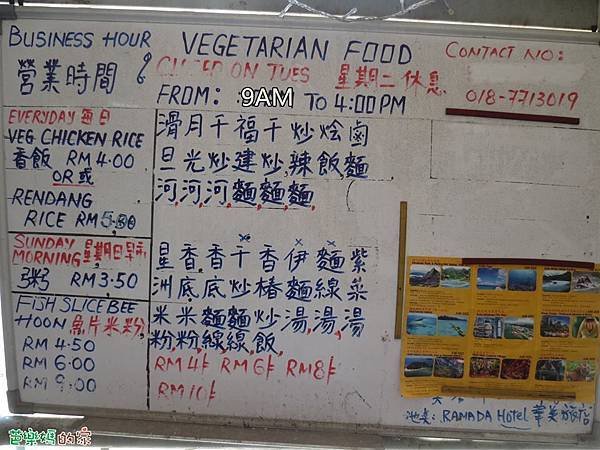 BUSINESS HOUR
營業時間
VEGETARIAN FOOD
CONTACT NO:
ON TUES 星期二休息
018-7713019
FROM: 9AM TO 4:00PM
EVERYDAY 每日
VEG CHICKEN RICE
香飯 RM 4.00
OR 或
RENDANG
RICE RM
SUNDAY 星期日早市
MORNING
粥 RM 3.50
FISH SLICE BEE
HOON 魚片米粉
RM 4.50
RM 6.00
RM 9.00
滑月干福干炒燴鹵
旦光炒建炒辣飯麵
河河河麵麵麵
星香香干香伊麵紫
洲底底炒椿麵線菜
米米麵麵炒湯湯湯
粉粉線線飯
RM4 RM6 RM8
RM10
RAMADA Hotel 華美旅店
芭樂媽的家